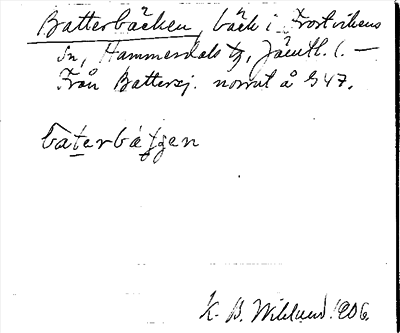 Batterbäcken, bäck i Frostvikens
sn, Hammerdals tg, Jämtl. l. —
Från Battersj. norrut å G47.
bat̲erbátjen
K. B. Wiklund 1906.